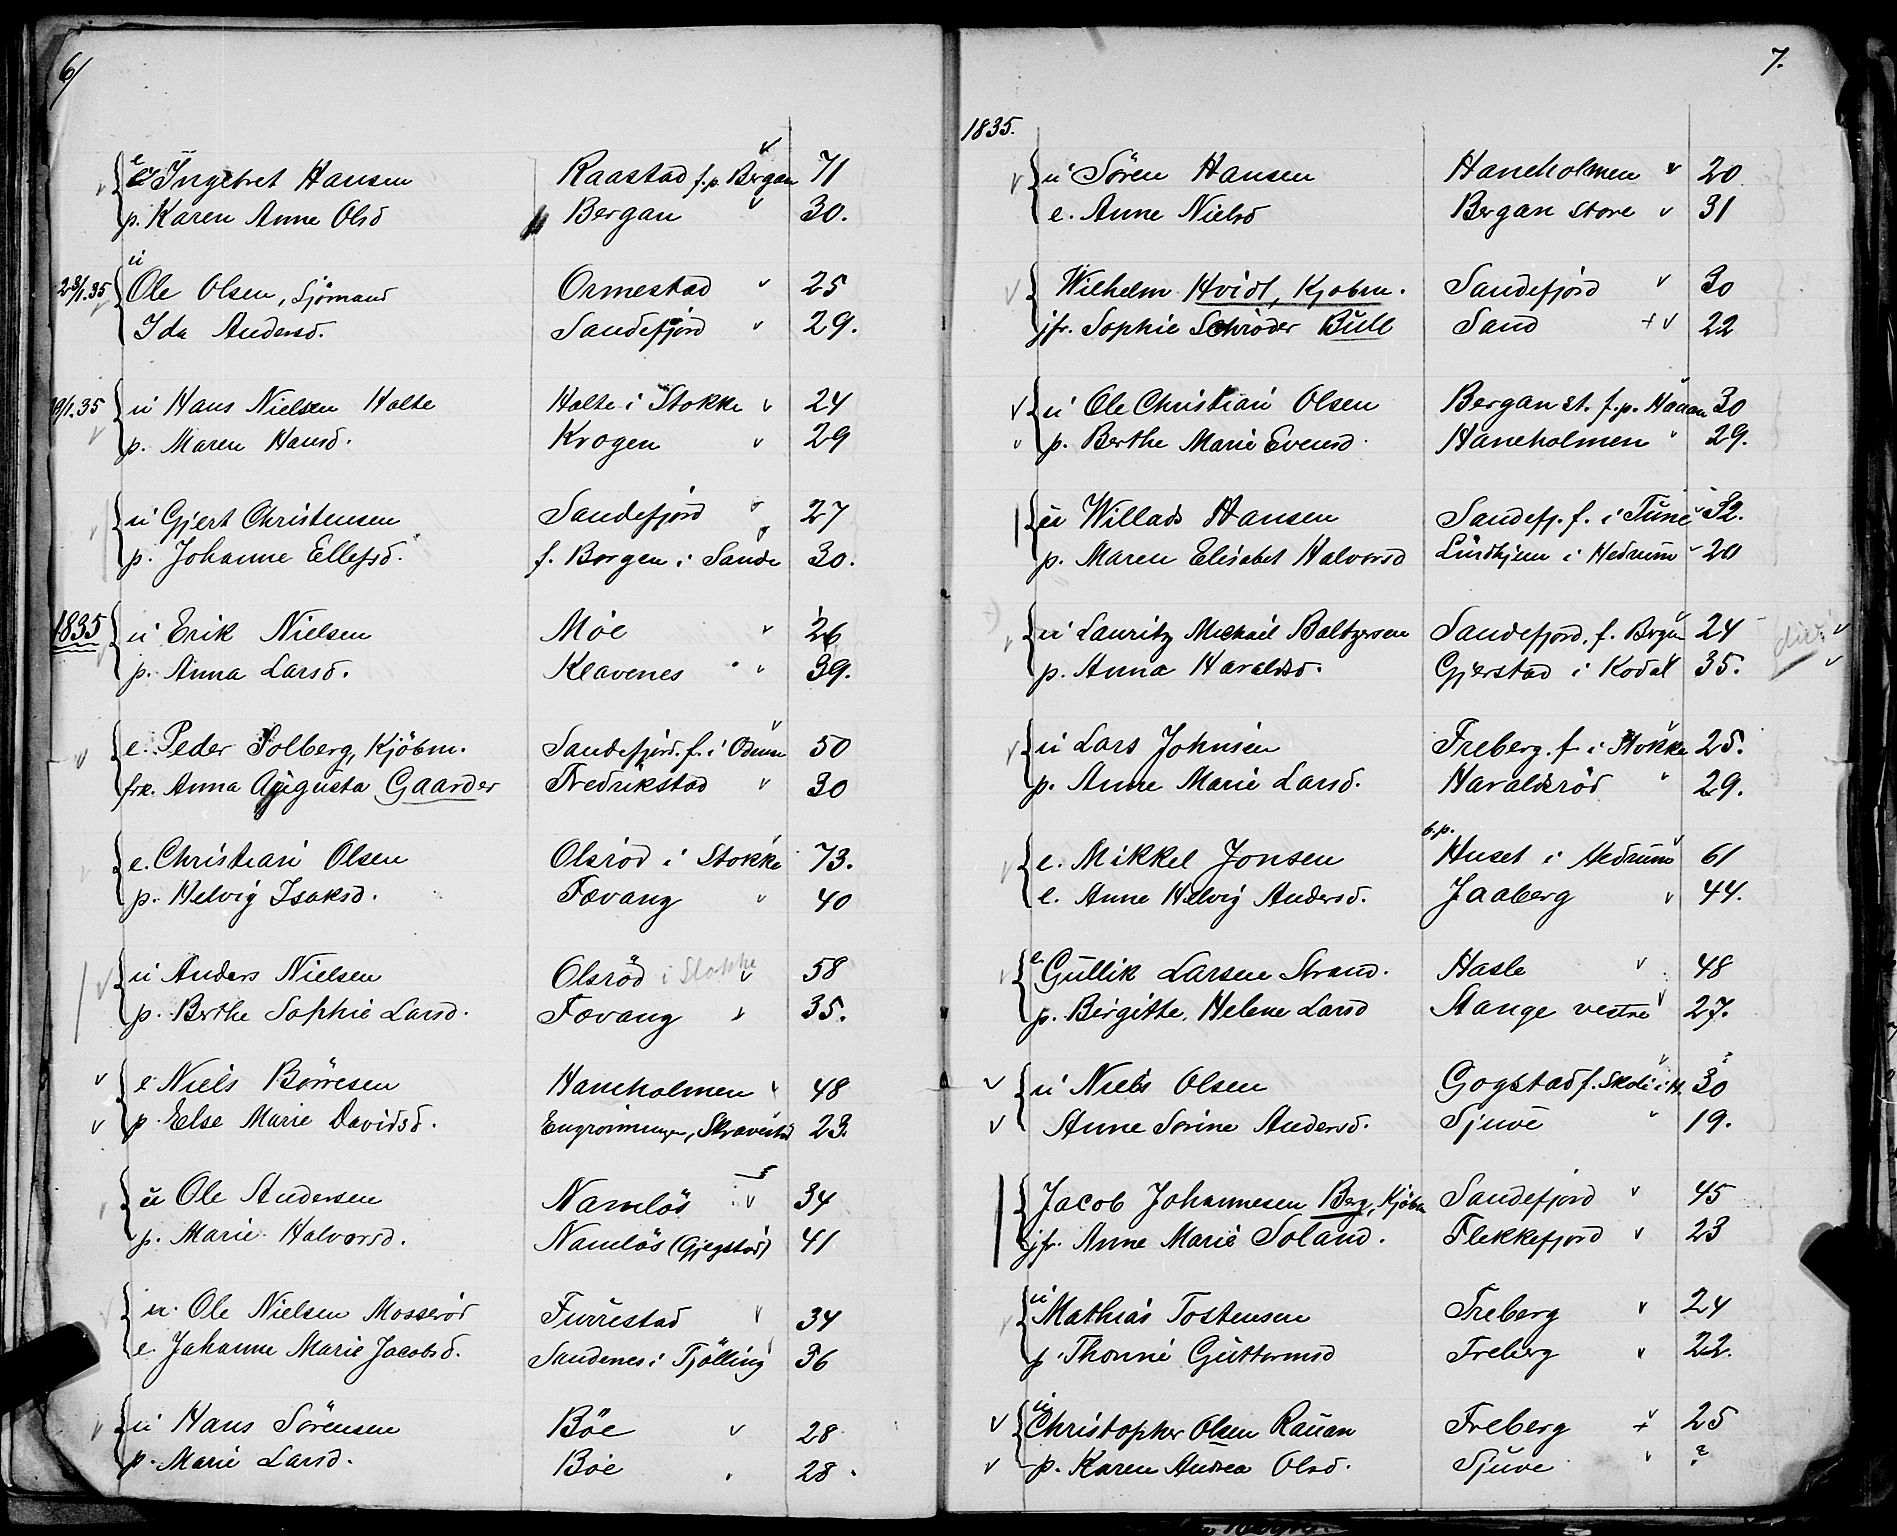 6/
e Ingebret Hansen Raastad f.p. Bergan v 71
p. Karen Anne Olsd Bergan v 30.
23/1.35 u Ole Olsen, Sjömand Ormestad v 25
Ida Andersd. Sandefjord v 29.
19/1.35 u Hans Nielsen Holte Holte i Stokke v 24
p. Maren Hansd. Krogen v 29
u Gjert Christensen Sandefjord 27
p. Johanne Ellefsd. f. Borgen i Sande 30.
1835 u Erik Nielsen Möe v 26
p. Anna Larsd. Klavenes v 39.
e. Peder Solberg, Kjöbm. Sandefjord. f. i 50
frk. Anna Augusta Gaarder Fredrikstad v 30
e. Christian Olsen Olsröd i Stokke 73.
p. Helvig Isaksd. Fævang v 40
u Anders Nielsen Olsröd i Stokke v 58
p. Berthe Sophie Larsd. Fævang v 35.
e Niels Börresen Haneholmen v 48
p. Else Marie Davidsd. 23.
u Ole Andersen Namlös v 34
p. Marie Halvorsd. Namlös (Gjegstad) 41
u. Ole Nielsen Mosseröd Furrestad v 34
e. Johanne Marie Jacobsd. Sandenes i Tjölling 36
u Hans Sörensen Böe v 28
p. Marie Larsd. Böe 28.
7.
1835.
u Sören Hansen Haneholmen v 20
e. Anne Nielsd Bergan store v 31
Wilhelm Hvidt, Kjobm. Sandefjord v 30
jfr. Sophie Schröder Bull Sand + v 22
u Ole Christian Olsen Bergan st. f.p. Hauan 30
p. Berthe Marie Evensd. Haneholmen 29.
u Willads Hansen Sandefj. f. i Tune 32.
p. Maren Elisabet Halvorsd Lindhjem i Hedrum 20
u Lauritz Michael Baltzersen Sandefjord. f. 24
p. Anna Haraldsd. Gjerstad i Kodal 35.
u Lars Johnsen Freberg. f. i Stokke 25.
p. Anne Marie Larsd. Haraldsröd 29.
e. Mikkel Jonsen f.p. Huset i Hedrum 61
e. Anne Helvig Andersd. Jaaberg v 44.
e Gullik Larsen Strand. Hasle v 48
p. Birgitte Helene Larsd Stange vestre 27.
u Niels Olsen Gogstad f. Skoli i H. 30 ?
Anne Sorine Andersd. Sjuve 19.
Jacob Johannesen Berg, Kjöbm Sandefjord v 45
jfr. Anne Marie Soland. Flekkefjord v 23
u Mathias Tostensen Freberg v 24
p. Thonne Guttormsd Freberg v 22.
u Christopher Olsen Rauan Freberg v + 25
p. Karen Andrea Olsd. Sjuve ?